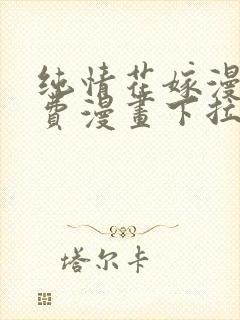 纯情花嫁漫
费漫畫下拉
塔尔卡